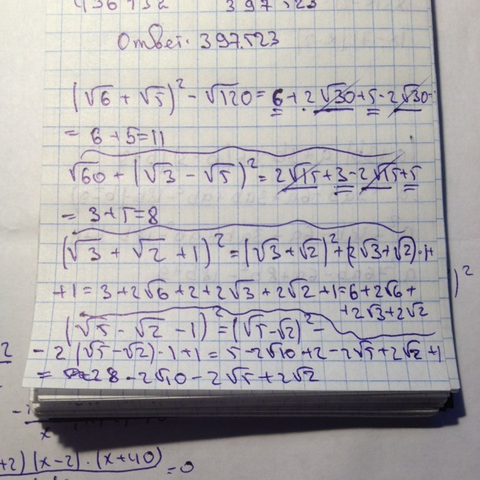 436732 397523
Ответ: 397.523
(√6 + √5)² - √120 = 6 + 2√30 + 5 - 2√30 =
= 6 + 5 = 11
√60 + (√3 - √5)² = 2√15 + 3 - 2√15 + 5
= 3 + 5 = 8
(√3 + √2 + 1)² = (√3 + √2)² + (2√3 + √2)·1+
+1 = 3 + 2√6 + 2 + 2√3 + 2√2 + 1 = 6 + 2√6 +
+ 2√3 + 2√2
)²
(√5 - √2 - 1)² = (√5 - √2)² -
- 2(√5 - √2)·1 + 1 = 5 - 2√10 + 2 - 2√5 + 2√2 + 1
= 8 - 2√10 - 2√5 + 2√2
2
x
+2)(x-2)·(x+40) = 0